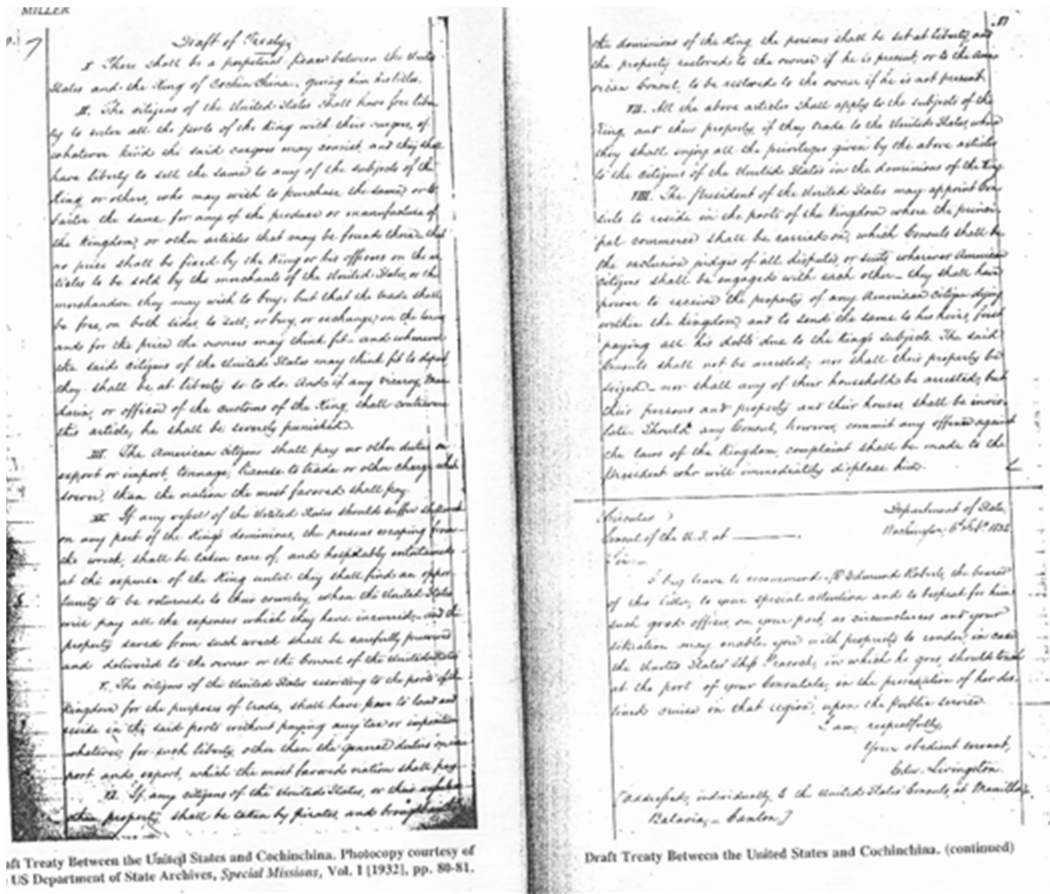 MILLER
7
Draft of Treaty,
I. There shall be a perpetual peace between the United
States and the King of Cochin China, giving him his titles.
II. The citizens of the United States shall have free liber
ty to enter all the ports of the King with their cargoes, of
whatever kind the said cargoes may consist, and they shall
have liberty to sell the same to any of the subjects of the
King or others, who may wish to purchase the same, or to
barter the same for any of the produce or manufacture of
the Kingdom, or other articles that may be found there, that
no price shall be fixed by the King or his officers on the ar
ticles to be sold by the merchants of the United States, or the
merchandise they may wish to buy, but that the trade shall
be free, on both sides, to sell, or buy, or exchange, on the terms
and for the price the owners may think fit and whenever
the said citizens of the United States may think fit to depart
they shall be at liberty so to do. And if any viceroy, Man
darin, or officer of the customs of the King, shall contravene
this article, he shall be severely punished.
III. The American citizens shall pay no other duties on
export or import, tonnage, license to trade or other charge what
soever, than the nation the most favored shall pay.
IV. If any vessel of the United States should suffer shipwreck
on any part of the King's dominions, the persons escaping from
the wreck, shall be taken care of, and hospitably entertained
at the expense of the King until they shall find an oppor
tunity to be returned to their country, when the United States
will pay all the expenses which they have incurred; and the
property saved from such wreck shall be carefully preserved
and delivered to the owner or the Consul of the United States
V. The citizens of the United States resorting to the ports of the
Kingdom for the purposes of trade, shall have leave to land and
reside in the said ports without paying any tax or imposition
whatever, for such liberty, other than the general duties on im
port and export, which the most favored nation shall pay.
VI. If any citizens of the United States, or their
property shall be taken by pirates, and brought
81
the dominions of the King the persons shall be set at liberty, and
the property restored to the owner if he is present, or to the Ame
rican Consul, to be restored to the owner if he is not present
VII. All the above articles shall apply to the subjects of the
King and their property, if they trade to the United States, where
they shall enjoy all the privileges given by the above articles
to the citizens of the United States in the dominions of the King
VIII. The President of the United States may appoint Con
suls to reside in the ports of the Kingdom where the princi
pal commerce shall be carried on, which Consuls shall be
the exclusive judges of all disputes, or suits wherever American
citizens shall be engaged with each other they shall have
power to receive the property of any American citizen dying
within the Kingdom, and to send the same to his heirs, first
paying all his debts due to the King's subjects. The said
Consuls shall not be arrested, nor shall their property be
seized nor shall any of their household be arrested, but
their persons and property and their houses shall be invio
late. Should any Consul, however, commit any offence against
the laws of the Kingdom, complaint shall be made to the
President who will immediately displace him.
Circular
Department of State,
Consul of the U.S. at
Washington, Feb. 1832
Sir,
I beg leave to recommend Mr. Edmund Roberts, the bearer
of this letter, to your special attention and to bespeak for him
such good offices, on your part, as circumstances and your
situation may enable you with propriety to render, in case
the United States' Ship Peacock, in which he goes, should touch
at the port of your Consulate, in the prosecution of her des
tined cruise in that region, upon the Public service.
I am, respectfully,
Your obedient servant,
Edw. Livingston.
[Addressed, individually, to the United States' Consuls at Manilla,
Batavia, Canton]
aft Treaty Between the United States and Cochinchina. Photocopy courtesy of
US Department of State Archives, Special Missions, Vol. I [1932], pp. 80-81.
Draft Treaty Between the United States and Cochinchina. (continued)